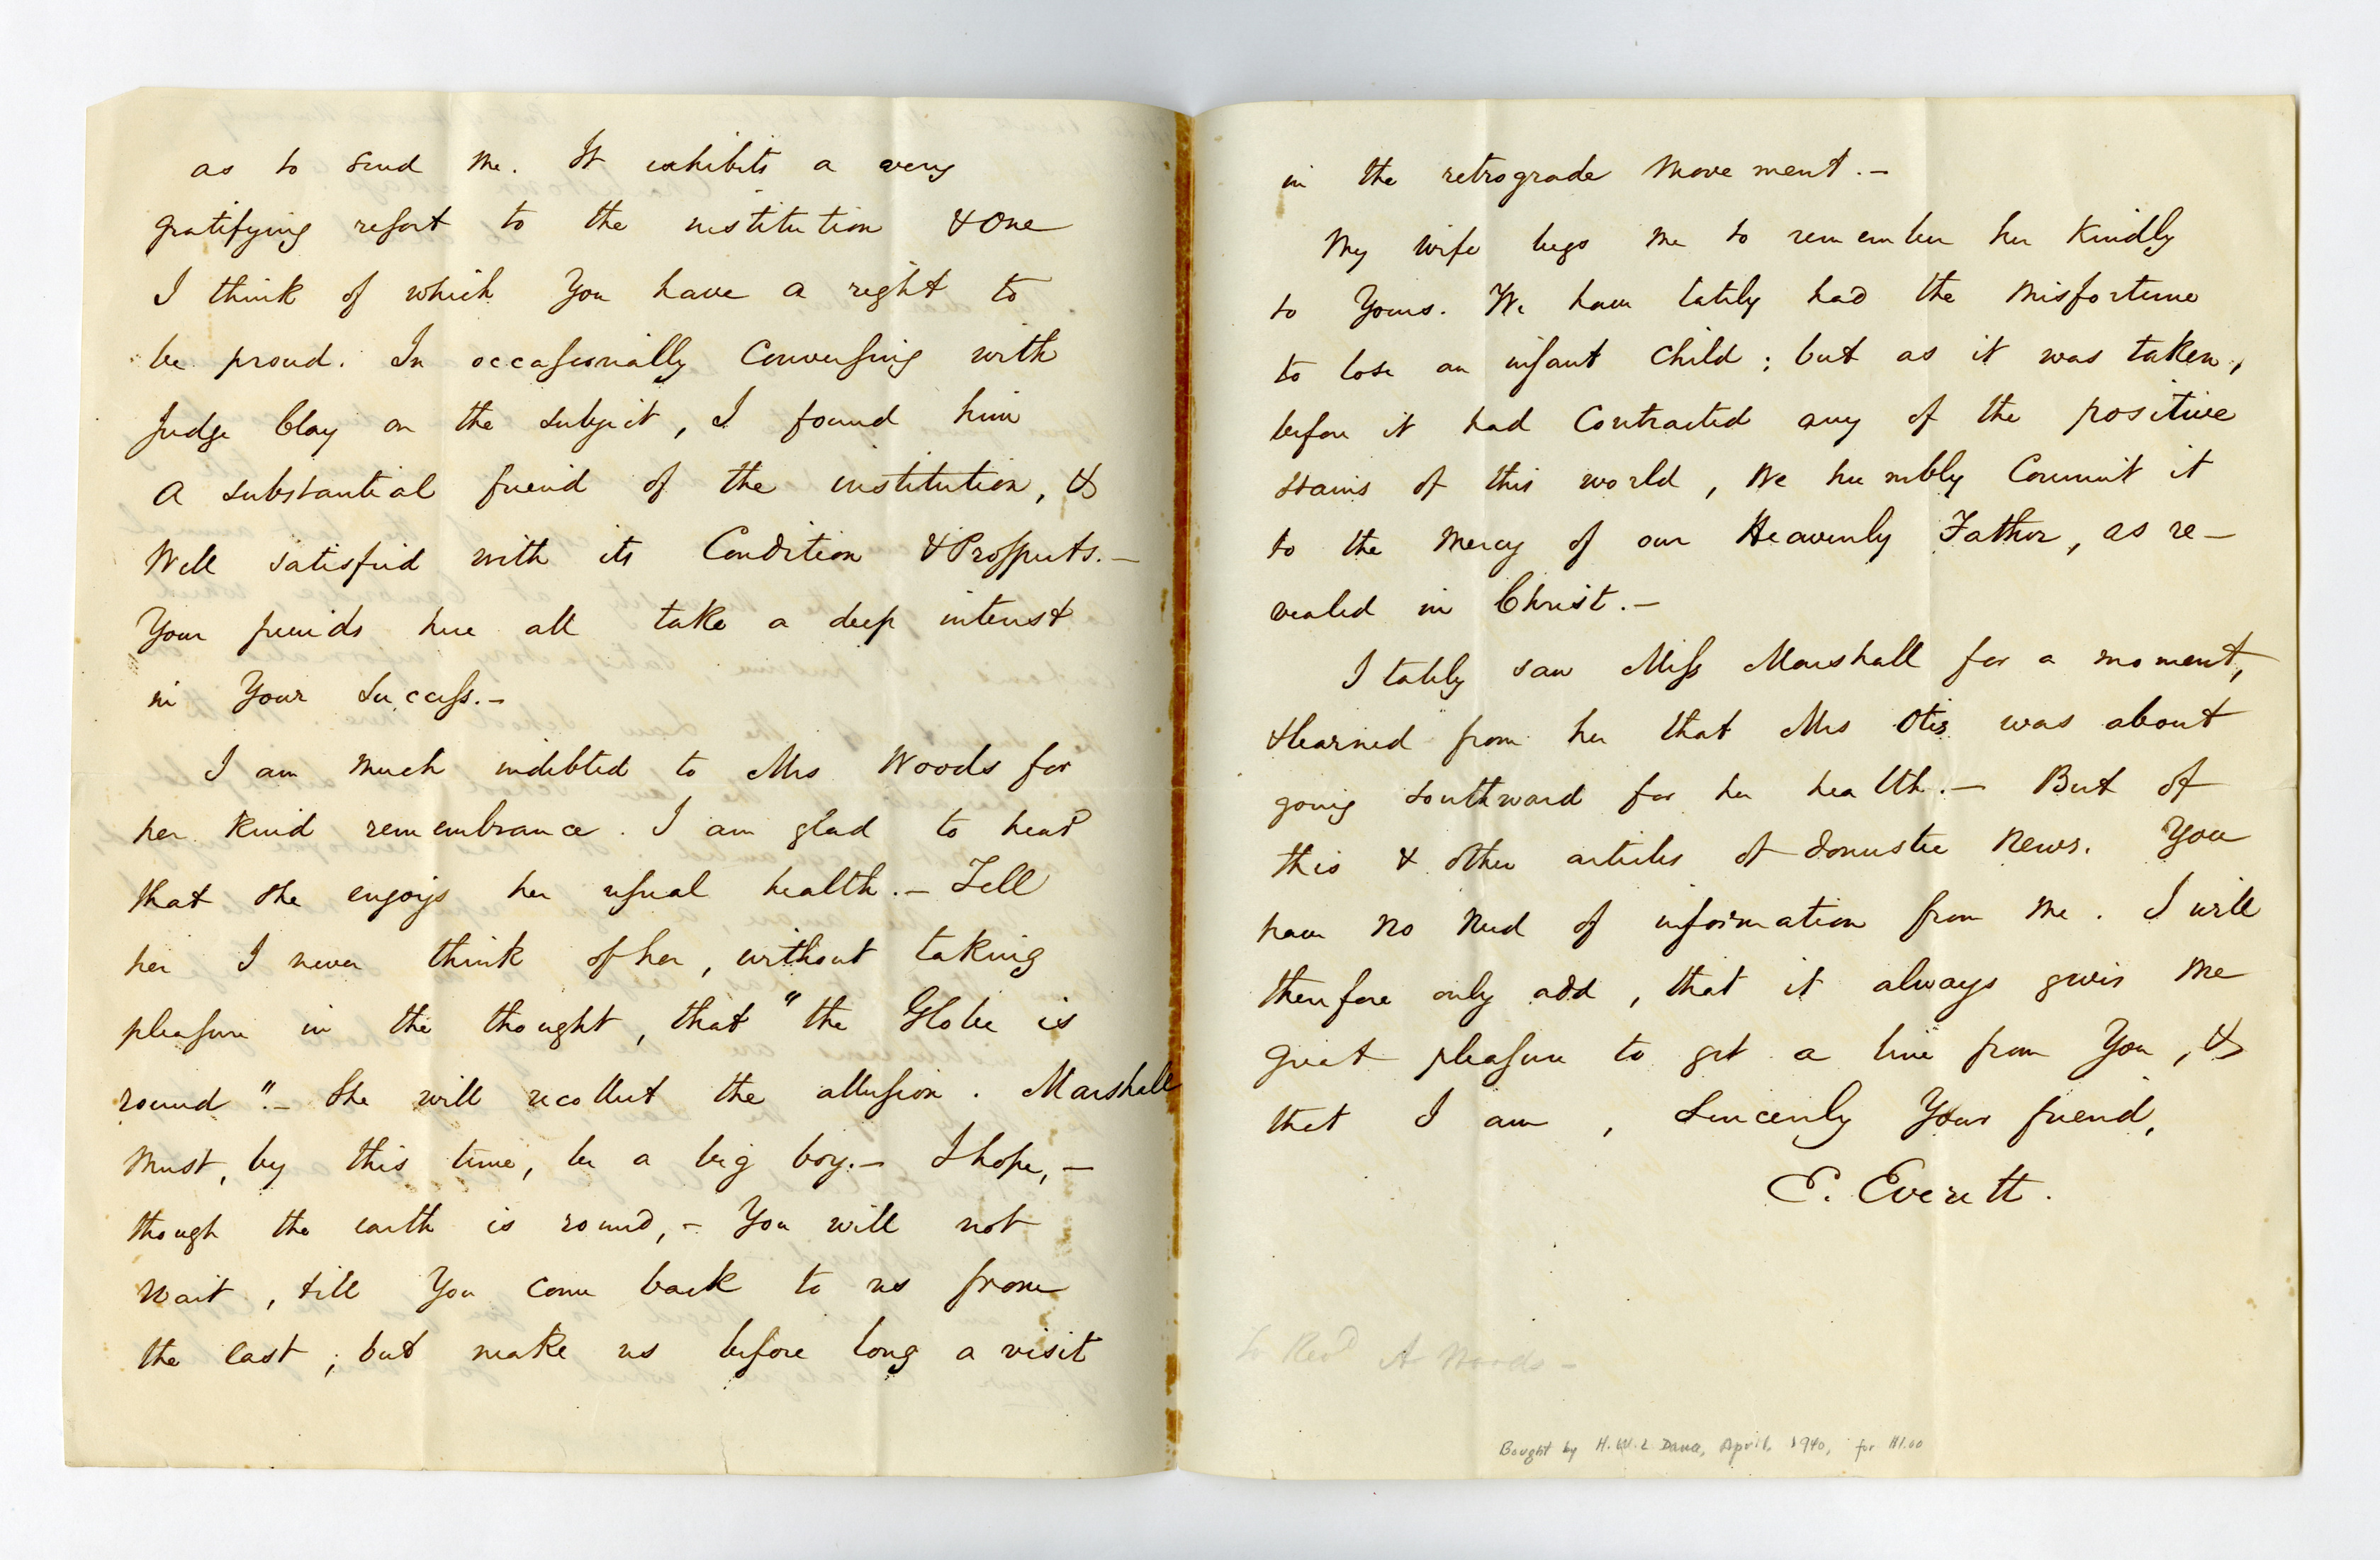 as to send me. It exhibits a very
gratifying resort to the institution & one
I think of which you have a right to
be proud. In occasionally Conversing with
Judge Clay on the subject, I found him
a substantial friend of the institution, &
Well satisfied with its Condition & Prospects.—
Your friends here all take a deep interest
in Your Success.—
I am much indebted to Mrs Woods for
her kind remembrance. I am glad to hear
that she enjoys her usual health.— Tell
her I never think of her, without taking
pleasure in the thought, that "the Globe is
round".— She will recollect the allusion. Marshall
must, by this time, be a big boy.— I hope,—
though the earth is round,— You will not
wait, till You come back to us from
the east; but make us before long a visit
in the retrograde movement.—
My wife begs me to remember her Kindly
to Yours. We have lately had the misfortune
to lose an infant child; but as it was taken,
before it had Contracted any of the positive
stains of this world, We humbly Commit it
to the mercy of our Heavenly Father, as re—
vealed in Christ.—
I lately saw Miss Marshall for a moment,
& learned from her that Mrs Otis was about
going southward for her health.— But of
this & other articles of domestic news. You
have no need of information from me. I will
therefore only add, that it always gives me
great pleasure to get a line from You, &
that I am, Sincerely Your friend,
E. Everett.
To Revd A Woods—
Bought by H. W. L. Dana, April, 1940, for $1.00